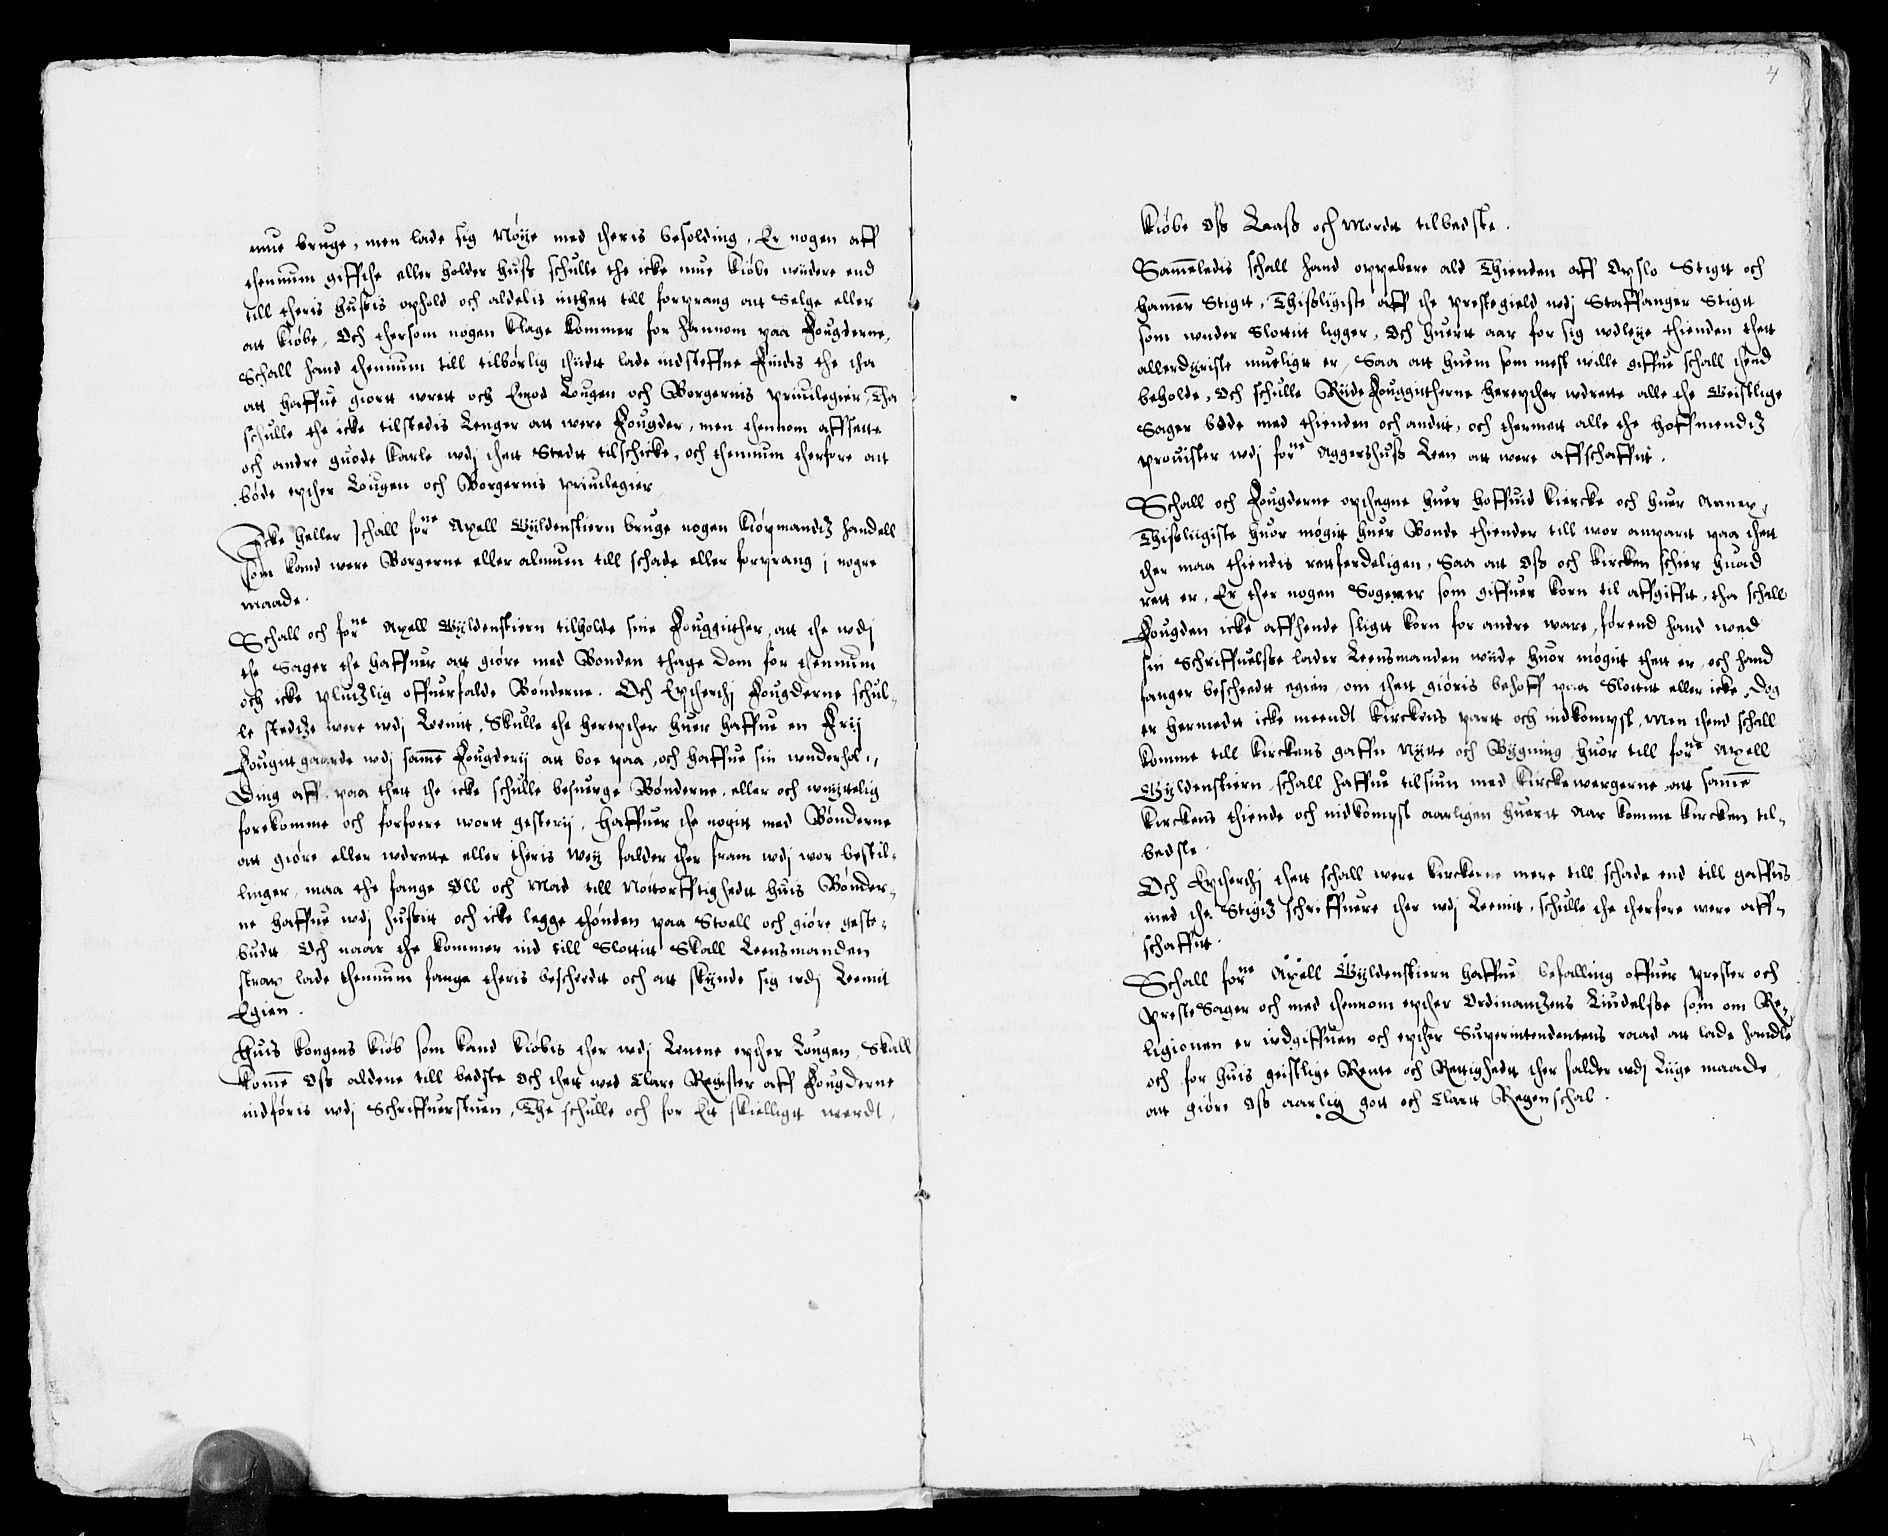 mue bruge, men lade sig Nøye med theris besolding, Er nogen aff
thennum giffthe eller holder huss schulle the icke mue kiøbe widere end
till theris hussis ophold och aldelis inthett till forprang att Selge eller
att kiøbe, Och thersom nogen klage kommer for hannom paa Fougderne,
Schall hand thennum till tilbørlig thiidt lade indsteffne Findis the tha
att haffue giortt wrett och Emod Lougen och Borgernis priuilegier, Tha
schulle the icke tilstedis Lenger att were Fougder, men thennom affsette
och andre guode karle wdj thett Stedtt tilschicke, och thennum therfore att
bøde epther Lougen och Borgernis priuilegier
Icke heller schall forne Axell Gyldenstiern bruge nogen kiøpmandtz handell
som kand were Borgerne eller almuen till schade eller forprang i nogre
maade.
Schall och forne Axell Gyldenstiern tilholde sine Fouggither, att the wdj
the Sager the haffuer att giøre med Bonden thage Dom for thennum
och icke plutzlig offuerfalde Bønderne. Och Eptherthj Fougderne schul-
le stedtze were wdj Leenit, Skulle the herepther huer haffue en Frij
Fougitt gaarde wdj samme Fougderij att boe paa, och haffue sin wnderhol-
Ding aff, paa thett the icke schulle besuerge Bønderne, eller och wnyttelig
forekomme och forfoere wortt gesterij, Haffuer the nogitt med Bønderne
att giøre eller wdrette eller theris wey falder ther fram wdj wor bestil-
linger, maa the fange Øll och Mad till Nøttorfftighedtt huis Bønder-
ne haffue wdj hussitt och icke legge thønden paa Stoell och giøre geste-
budtt Och naar the kommer ind till Slottitt Skall Leensmanden
strax lade thennum fange theris beschedtt och att skynde sig wdj Leenit
Egien.
Huis kongens kiøb som kand kiøbis ther wdj Lenene epther Lougen, Skall
komme Oss aldene till bedste Och thett wed Clare Register aff Fougderne
indføris wdj Schriffuerstuen, The schulle och for Ett skielligtt werdt,
4
kiøbe Oss Laass och Mordtt tilbedste.
Sammeledis schall hand oppebere ald Thienden aff Opslo Stigtt och
Hamer Stigtt, Thisligiste aff the prestegield wdj Staffanger Stigtt
som wnder Slottitt ligger, Och huertt aar for sig wdleye thienden thett
allerdyriste mueligtt er, Saa att huem som mest wille giffue schall thend
beholde, Och schulle Riide Fouggitherne herepther wdrette alle the Geistlige
Sager bode med thienden och anditt, och thermett alle the hoffmendtz
prouister wdj forne Aggershuss Leen att were affschaffitt.
Schall och Fougderne opthegne huer Hoffuid kiercke och huer Annex,
Thissligiste huor møgitt huer Bonde thiender till wor anpartt paa thett
ther maa thiendis rettferdeligen, Saa att Oss och kircken schier huad
rett er, Er ther nogen Sogener som giffuer korn til affgifftt, tha schall
Fougden icke affhende sligtt korn for andre ware, førend hand med
sin Schriffuelsse lader Leensmanden wiide huor møgitt thett er, och hand
fanger beschedtt egien, om thett giøris behoff paa Slottitt eller icke, Dog
er hermedtt icke meendt kirckens partt och indkompst, Men thend schall
komme till kirckens gaffn Nytte och Bygning huor till forne Axell
Gyldenstiern schall haffue tilsiun med kirckewergerne att samme
kirckens thiende och indkompst aarligen huertt Aar komme kircken til-
bedste.
Och Eptherthj thett schall were kirckerne mere till schade end till gaffns
med the Stigtz schriffuere ther wdj Leenitt, schulle the therfore were aff-
schaffitt.
Schall forne Axell Gyldenstiern haffue befalling offuer prester och
preste Sager och med thennom epther Ordinantzens Liudelsse som om Re-
ligionen er wdgiffuen och epther Superintendentens raad att lade handle
och for huis geistlige Rente och Rettighedtt ther falder wdj Liige maade,
att giøre Oss aarlig gott och Clartt Regenschab.
4